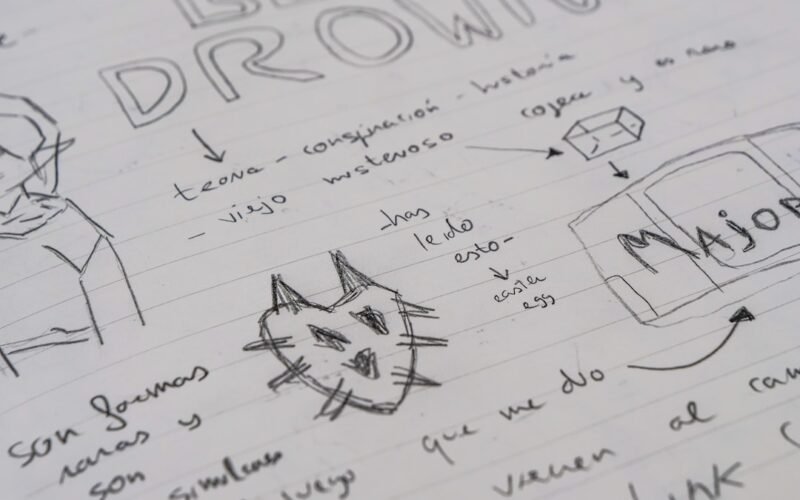 DROWN
teoria - conspiración - historia
- viejo misterioso
cogere y es raro
MAJOR
-has
leido
esto-
easter
egg
son formas
raras y
son similares
que me dio
luego vienen al